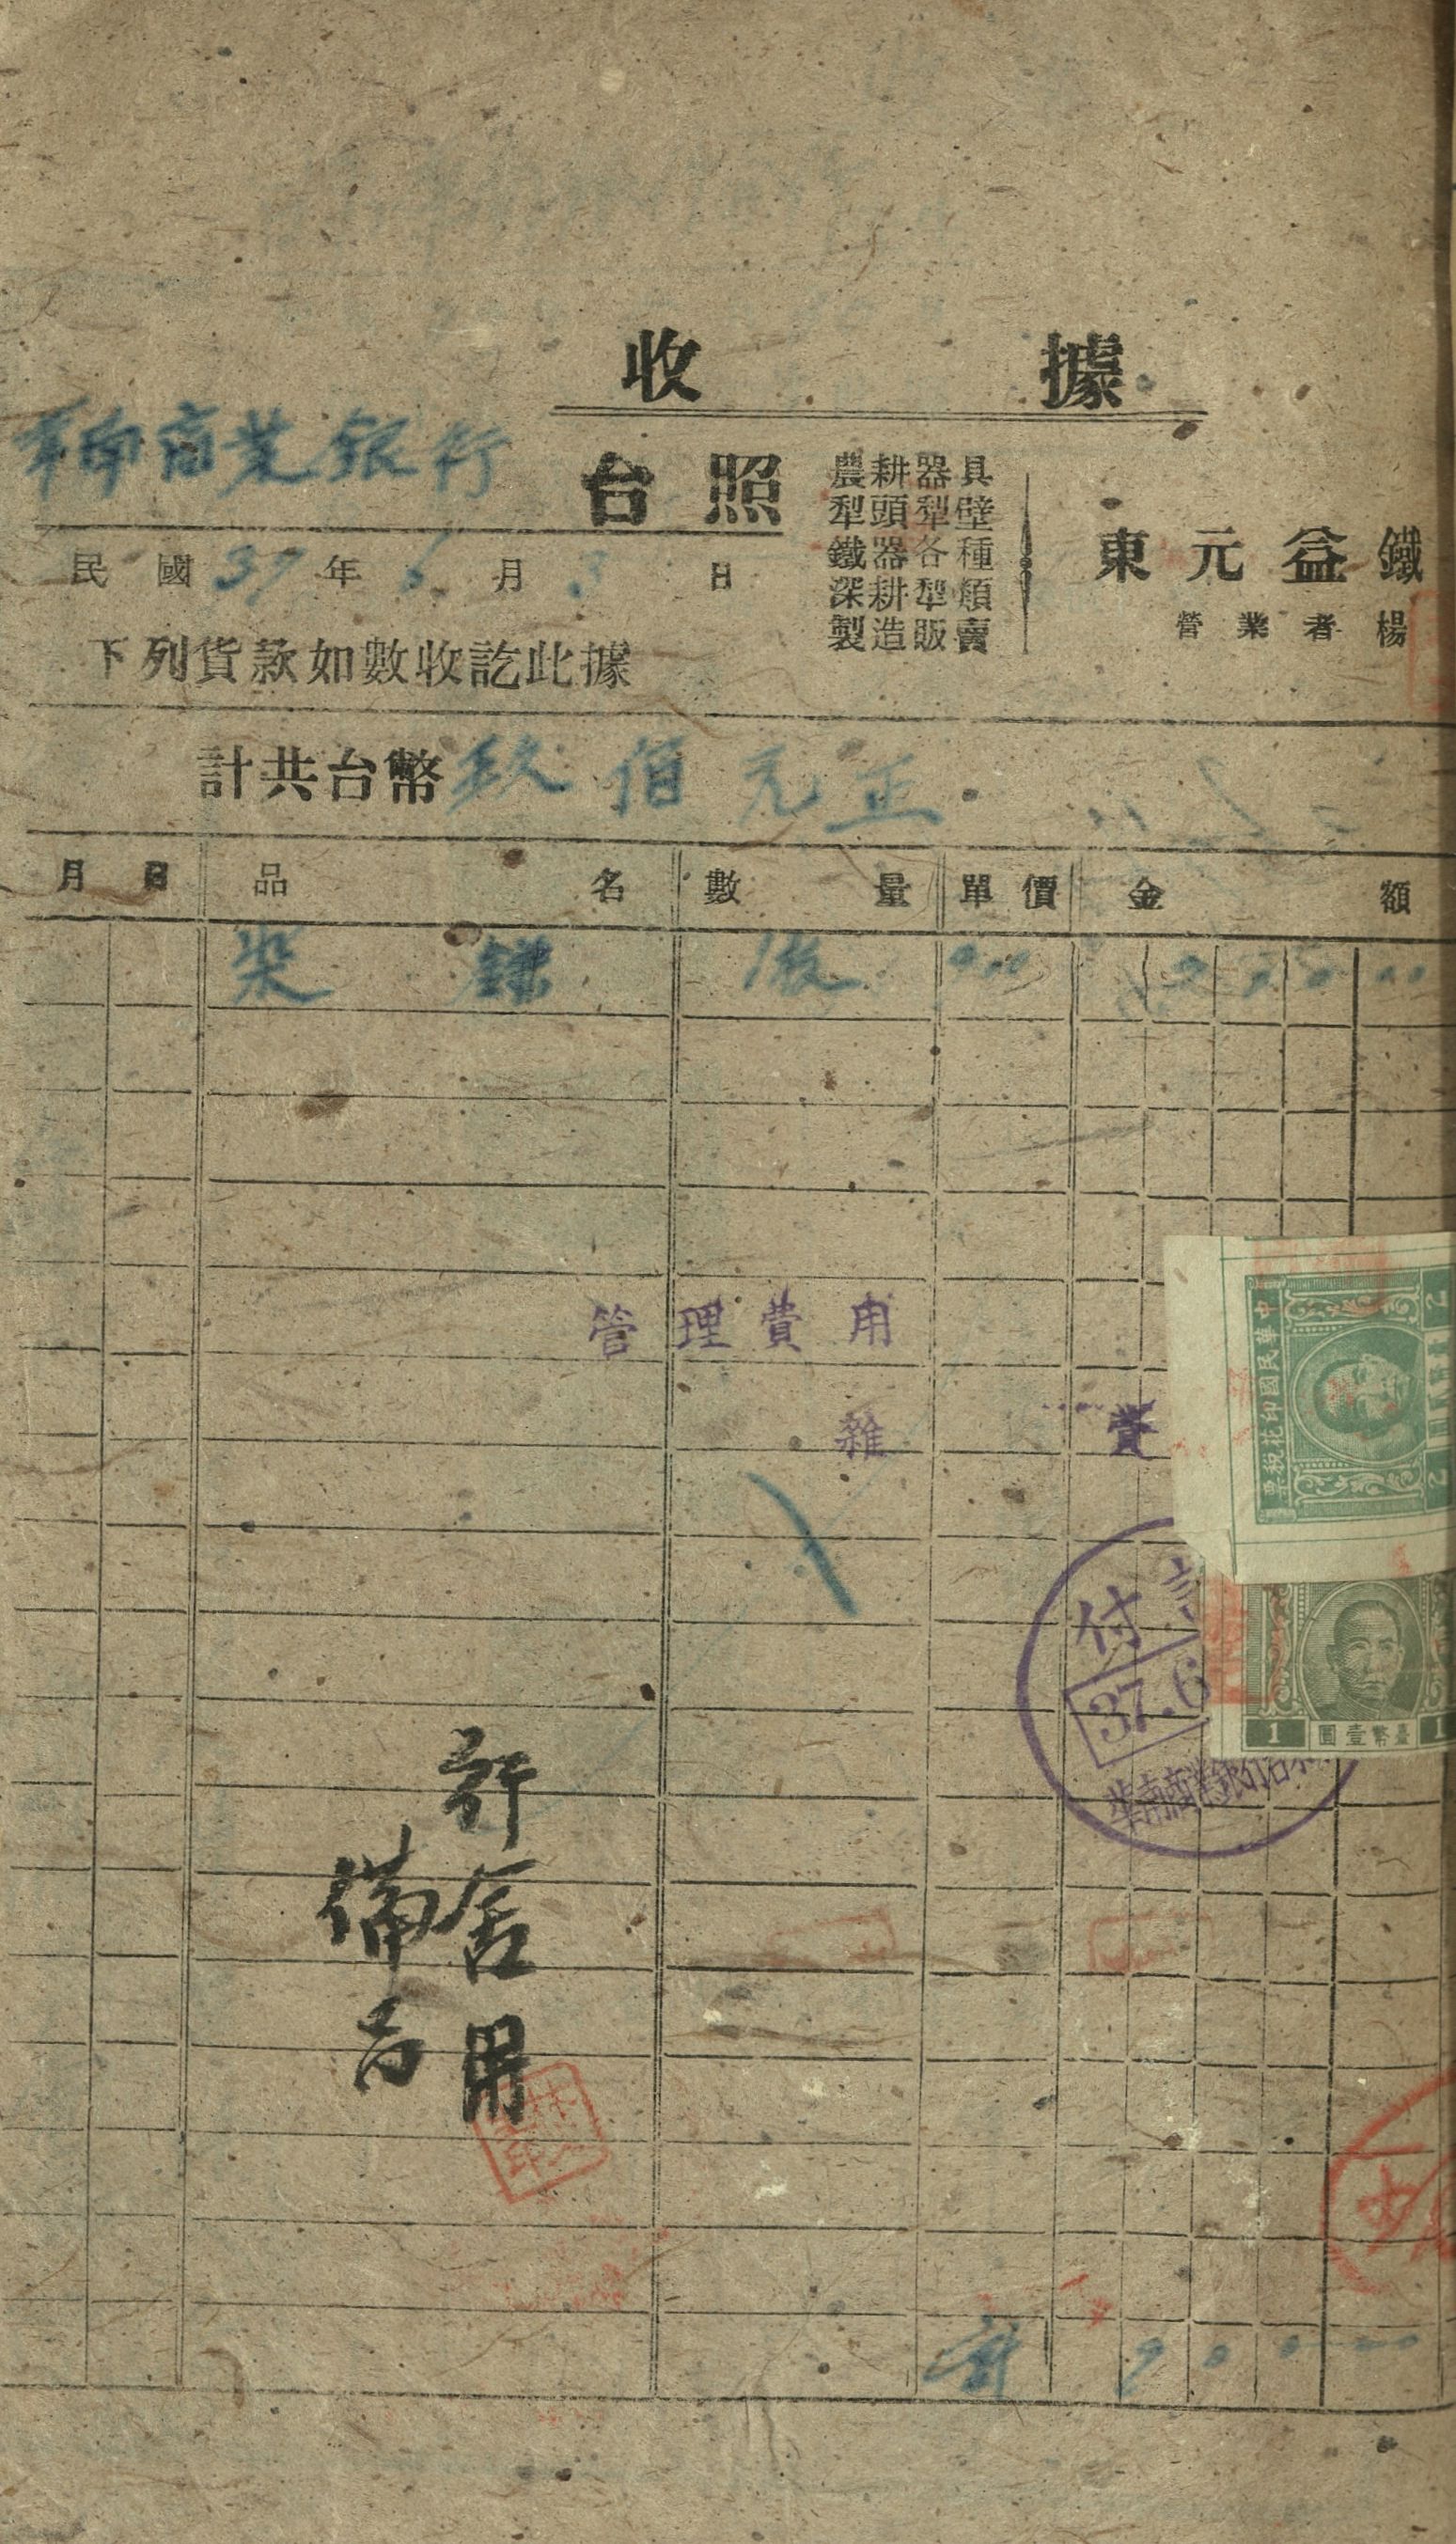 收據
華南商業銀行 台照
民國37年6月3日
下列貨款如數收訖此據
農耕器具
犁頭犁壁
鐵器各種
深耕犁類
製造販賣
東元益鐵
營業者 楊
計共台幣玖佰元正
月 日 品名 數量 單價 金額
柴 鐮 1 900 900 00
管理費用
雜 費
中華民國印花稅票
付
37.6
華南商業銀行
1 臺幣壹圓 1
行舍用
備品
計 900 00